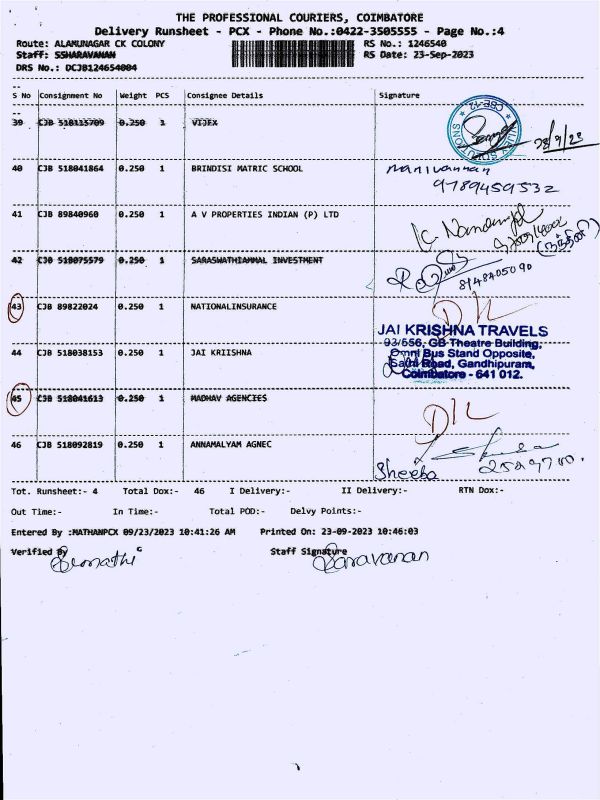 THE PROFESSIONAL COURIERS, COIMBATORE
Delivery Runsheet - PCX - Phone No.:0422-3505555 - Page No.:4
Route: ALAMUNAGAR CK COLONY RS No.: 1246540
Staff: SSHARAVANAN RS Date: 23-Sep-2023
DRS No.: DCJB124654004
S No Consignment No Weight PCS Consignee Details Signature
39 CJB 518115709 0.250 1 VIJEX
CBE-12
28/9/23
40 CJB 518041864 0.250 1 BRINDISI MATRIC SCHOOL Manivannan
9789459532
41 CJB 89840960 0.250 1 A V PROPERTIES INDIAN (P) LTD
42 CJB 518075579 0.250 1 SARASWATHIAMMAL INVESTMENT
8148405090
43 CJB 89822024 0.250 1 NATIONALINSURANCE D/L
JAI KRISHNA TRAVELS
93/556, GB Theatre Building,
Omni Bus Stand Opposite,
44 CJB 518038153 0.250 1 JAI KRIISHNA
Sathi Road, Gandhipuram,
Coimbatore - 641 012.
45 CJB 518041613 0.250 1 MADHAV AGENCIES D/L
46 CJB 518092819 0.250 1 ANNAMALYAM AGNEC
Sheeba 2529700.
Tot. Runsheet:- 4 Total Dox:- 46 I Delivery:- II Delivery:- RTN Dox:-
Out Time:- In Time:- Total POD:- Delvy Points:-
Entered By :MATHANPCX 09/23/2023 10:41:26 AM Printed On: 23-09-2023 10:46:03
Verified By Staff Signature
Sumathi Saravanan